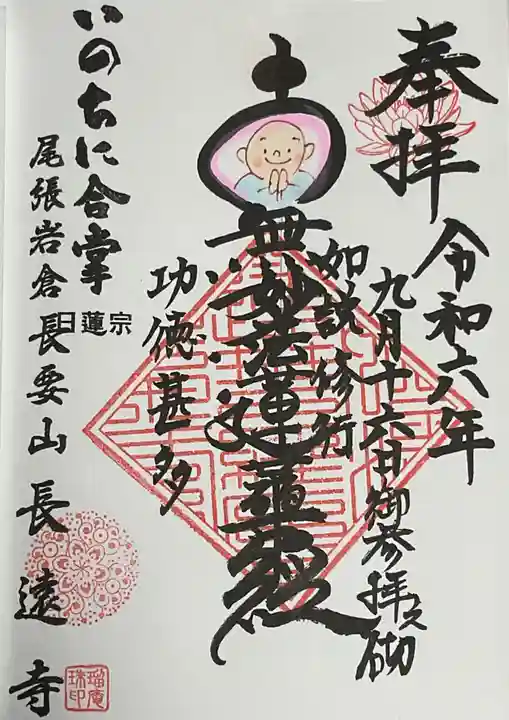 奉拝
令和六年
九月十六日御参拝之砌
如説修行
南無妙法蓮華経
功徳甚多
いのちに合掌
尾張岩倉
日蓮宗
長要山長遠寺